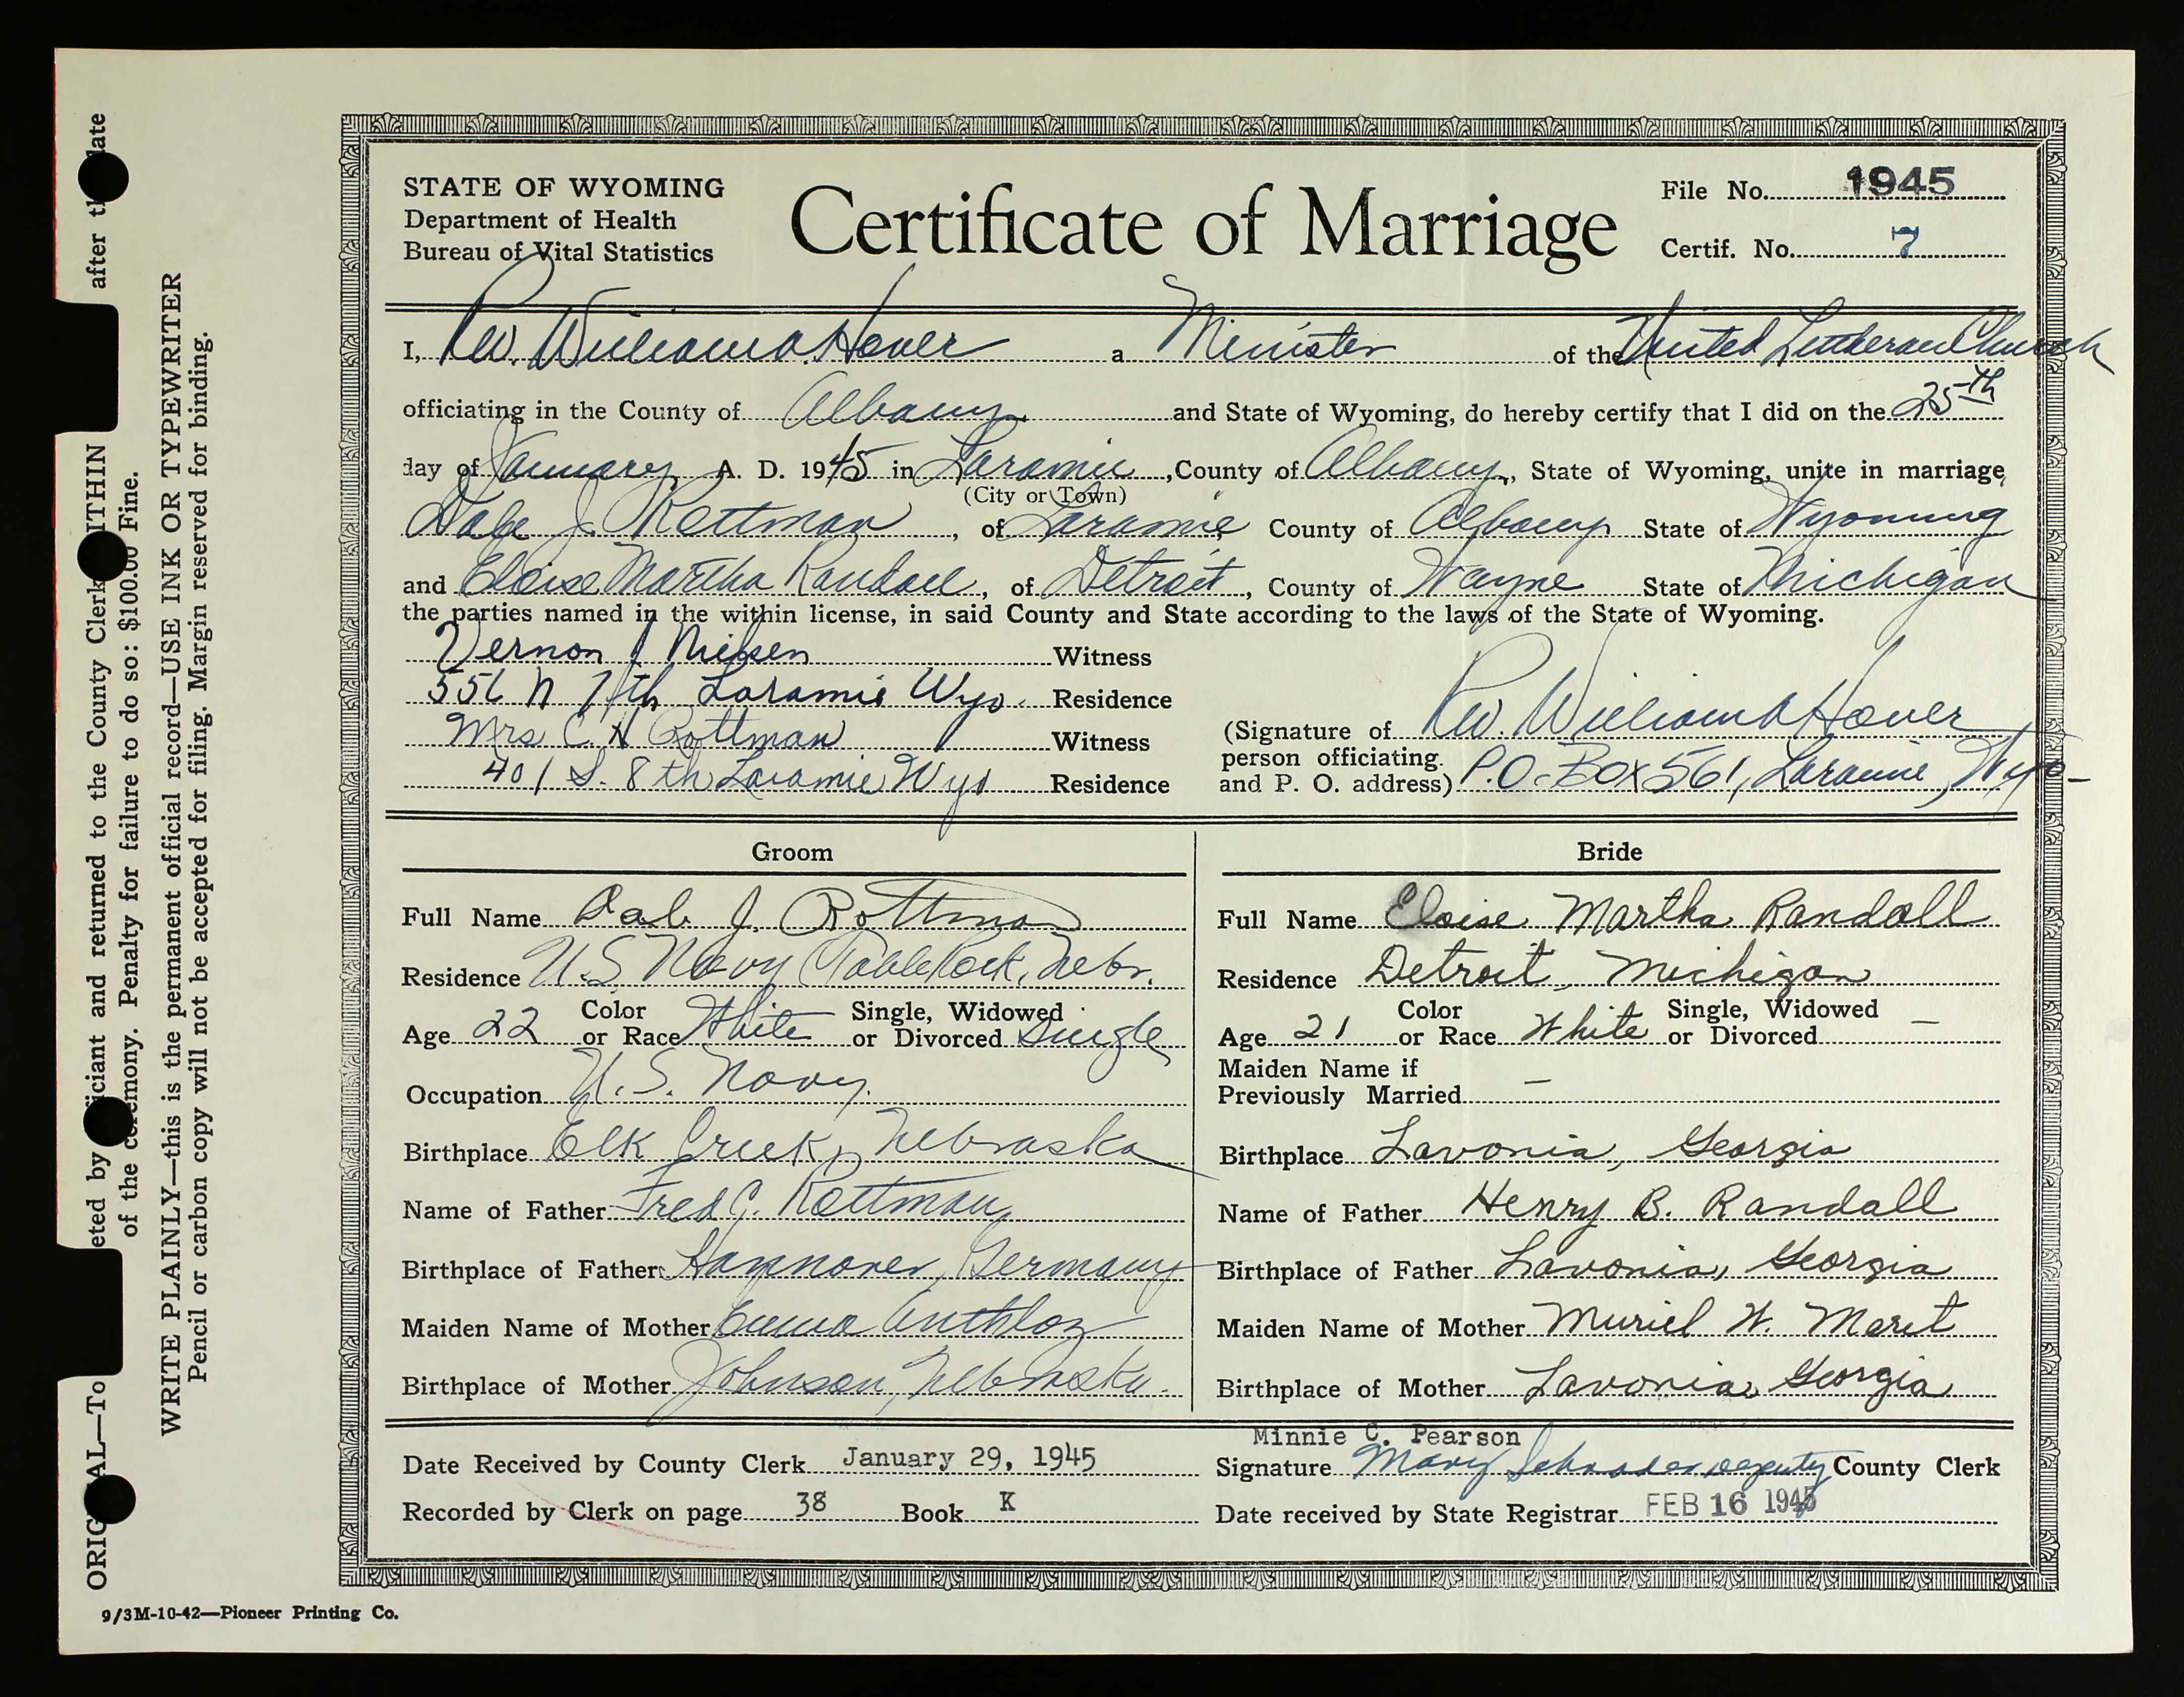 STATE OF WYOMING
Department of Health
Bureau of Vital Statistics
Certificate of Marriage
File No. 1945
Certif. No. 7
I, Rev. William A Hover a Minister of the United Lutheran Church
officiating in the County of Albany and State of Wyoming, do hereby certify that I did on the 25th
day of January A. D. 1945 in Laramie, County of Albany, State of Wyoming, unite in marriage
(City or Town)
Dale J. Rottman, of Laramie County of Albany State of Wyoming
and Eloise Martha Randall, of Detroit, County of Wayne State of Michigan
the parties named in the within license, in said County and State according to the laws of the State of Wyoming.
Vernon J Nielsen Witness
556 N 7th Laramie Wyo. Residence
Mrs C. H Rottman Witness
401 S. 8th Laramie Wyo Residence
(Signature of person officiating. and P. O. address) Rev. William A Hover
P.O. Box 561, Laramie, Wyo-
Groom
Full Name Dale J. Rottman
Residence U.S. Navy (Table Rock, Nebr.
Age 22 Color or Race White Single, Widowed or Divorced Single
Occupation U.S. Navy.
Birthplace Elk Creek, Nebraska
Name of Father Fred C. Rottman
Birthplace of Father Hannover, Germany
Maiden Name of Mother Emma
Birthplace of Mother Johnson, Nebraska.
Bride
Full Name Eloise Martha Randall
Residence Detroit, Michigan
Age 21 Color or Race White Single, Widowed or Divorced —
Maiden Name if
Previously Married —
Birthplace Lavonia, Georgia
Name of Father Henry B. Randall
Birthplace of Father Lavonia, Georgia
Maiden Name of Mother Muriel W. Meret
Birthplace of Mother Lavonia, Georgia
Date Received by County Clerk January 29, 1945
Recorded by Clerk on page 38 Book K
Minnie C. Pearson
Signature Mary Schrader deputy County Clerk
Date received by State Registrar FEB 16 1945
ORIG AL—To eted by iciant and returned to the County Clerk ITHIN after t ate
of the ce emony. Penalty for failure to do so: $100.00 Fine.
WRITE PLAINLY—this is the permanent official record—USE INK OR TYPEWRITER
Pencil or carbon copy will not be accepted for filing. Margin reserved for binding.
9/3M-10-42—Pioneer Printing Co.